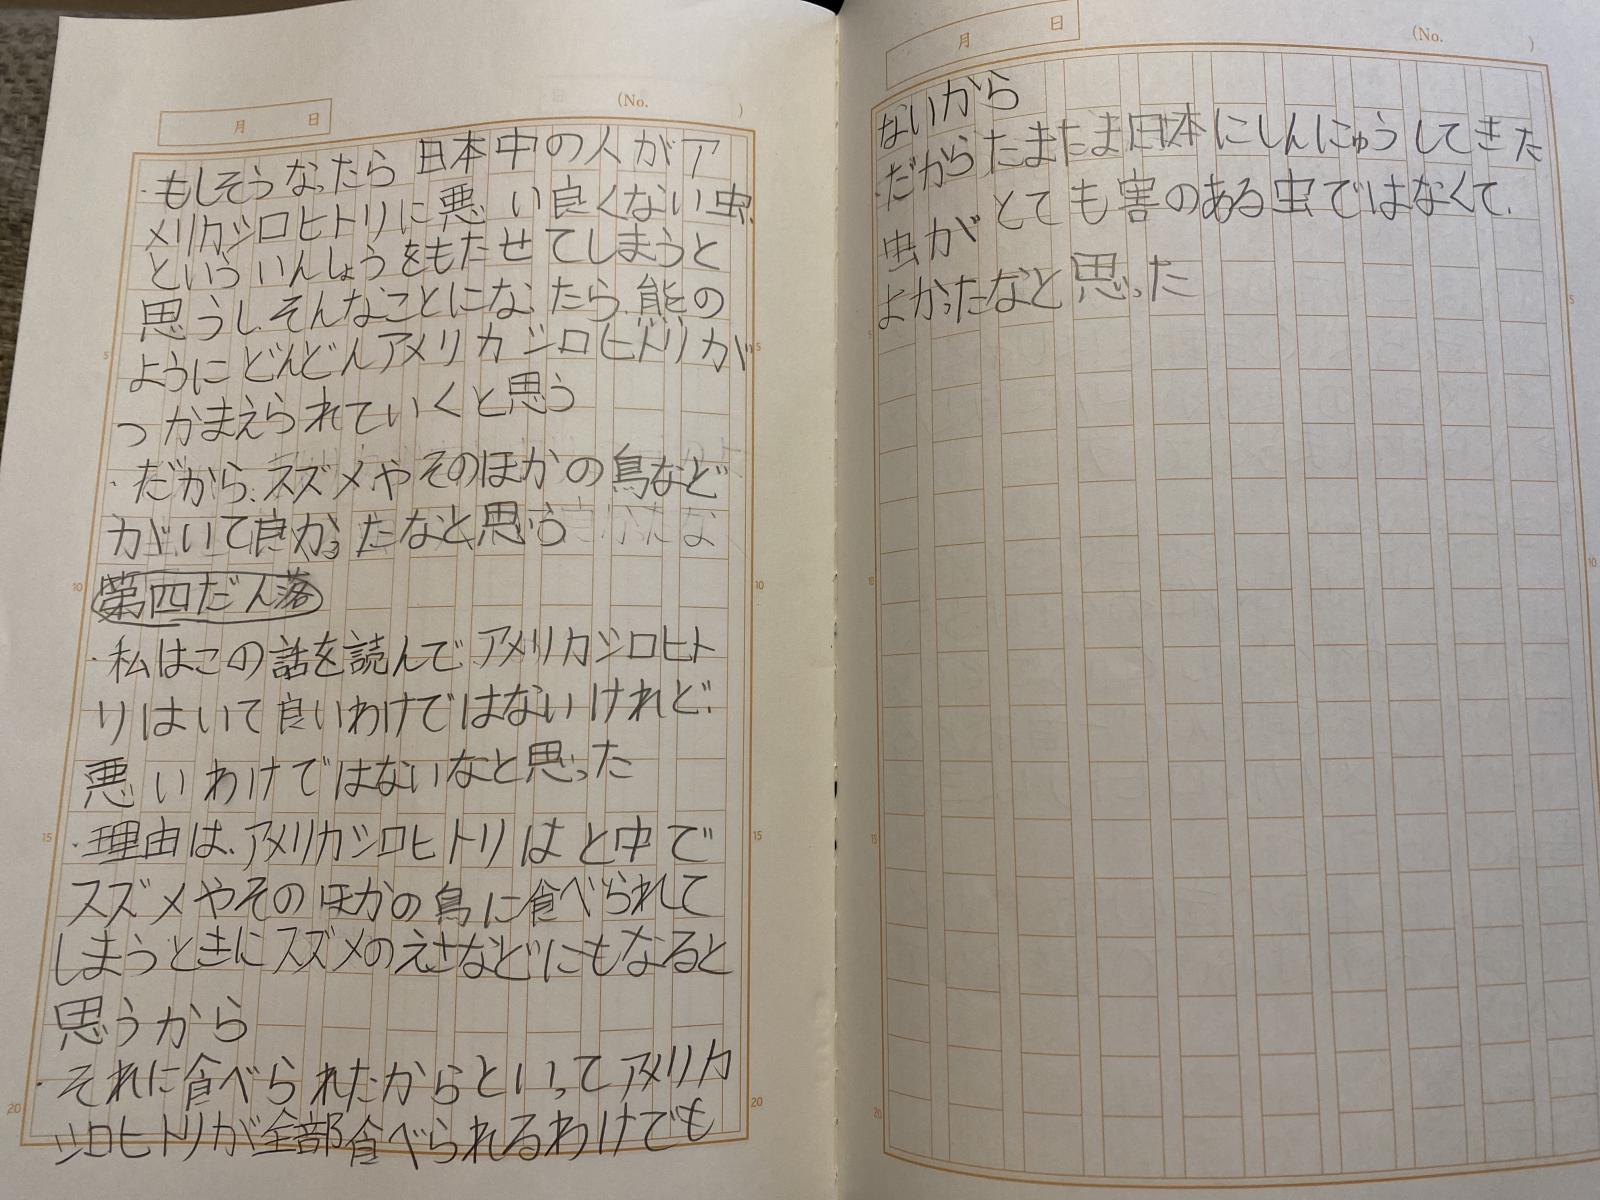 月 日 (No. )
・もしそうなったら日本中の人がア
メリカシロヒトリに悪い良くない虫
といういんしょうをもたせてしまうと
思うし、そんなことになったら、熊の
ようにどんどんアメリカシロヒトリが
つかまえられていくと思う
・だから、スズメやそのほかの鳥など
がいて良かったなと思う
第四だん落
・私はこの話を読んでアメリカシロヒト
リはいて良いわけではないけれど、
悪いわけではないなと思った
・理由は、アメリカシロヒトリはと中で
スズメやそのほかの鳥に食べられて
しまうときにスズメのえさなどにもなると
思うから
・それに食べられたからといってアメリカ
シロヒトリが全部食べられるわけでも
5
10
15
20
5
10
15
20
月 日 (No. )
ないから
・だからたまたま日本にしんにゅうしてきた
虫がとても害のある虫ではなくて、
よかったなと思った
5
10
15
20
5
10